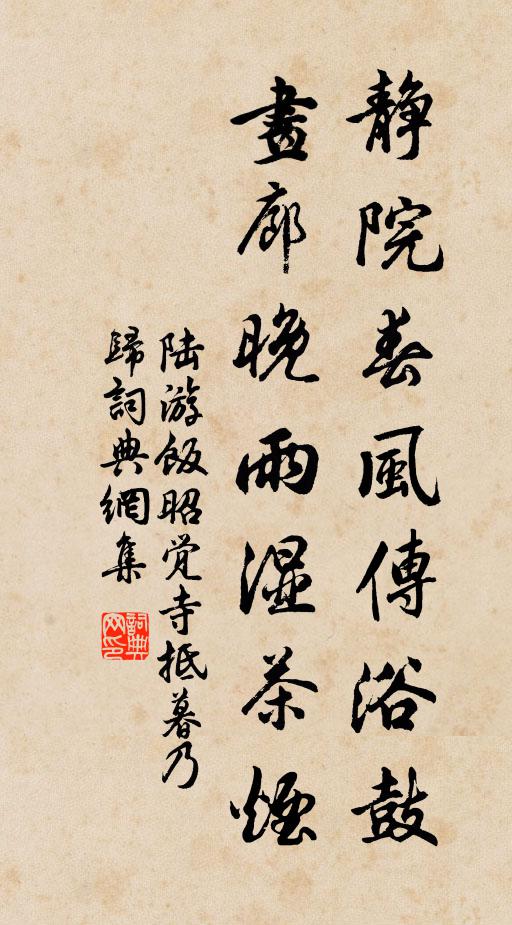 静院春風傳浴鼓
畫廊晚雨濕茶煙
陆游飯昭觉寺抵暮乃
歸詞典網集
詞典
网印